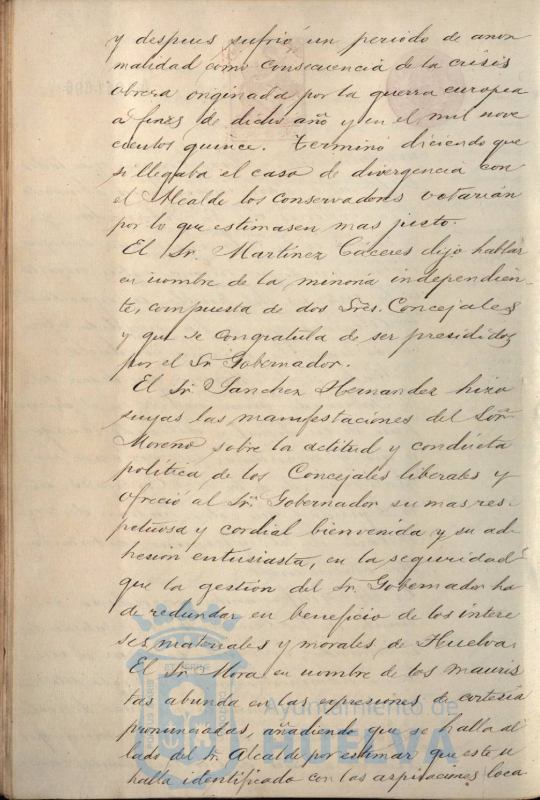 y despues sufrió un periodo de anor
malidad como consecuencia de la crisis
obrera originada por la guerra europea
a fines de dicho año y en el mil nove
cientos quince. Terminó diciendo que
si llegaba el caso de divergencia con
el Alcalde los conservadores votarían
por lo que estimasen mas justo.
El Sr. Martínez Cáceres dijo hablar
en nombre de la minoría independien-
te, compuesta de dos Sres. Concejales
y que se congratula de ser presididos
por el Sr. Gobernador.
El Sr. Sanchez Hernandez hizo
suyas las manifestaciones del Señr
Moreno sobre la actitud y conducta
política de los Concejales liberales y
ofreció al Sr. Gobernador su mas res-
petuosa y cordial bienvenida y su ad-
hesión entusiasta, en la seguridad
que la gestión del Sr. Gobernador ha
de redundar en beneficio de los intere
ses materiales y morales de Huelva.
El Sr. Mora en nombre de los mauris
tas abunda en las expresiones de cortesía
pronunciadas, añadiendo que se halla al
lado del Sr. Alcalde por estimar que este se
halla identificado con las aspiraciones loca
Ayuntamiento de
HUELVA